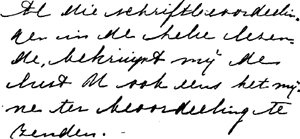 Al die schriftbeoordeelin-
gen in de hele leven-
de, bekruipt mij de
lust M ook eens het mij-
ne ter beoordeeling te
zenden.